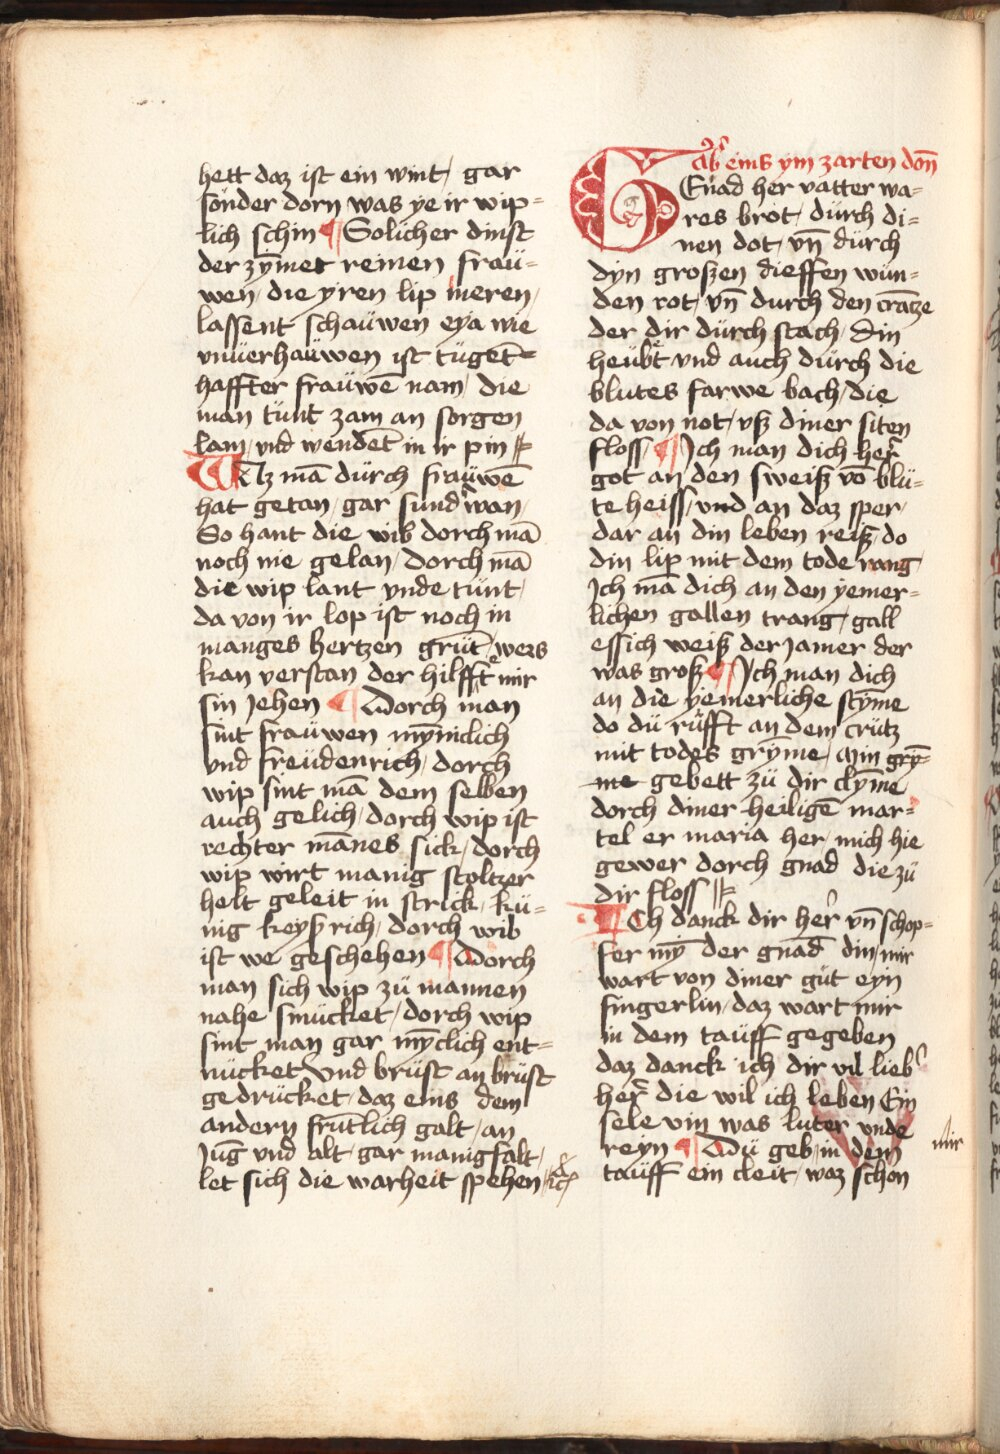 hett daz ist ein wint / gar
sonder dorn was ye ir wip=
lich schin ¶ Solicher dinst
der zÿmet reinen fraü=
wen / die yren lip meren /
lassent schaüwen eya nie
vnüerhaüwen ist tüget=
haffter fraüwē nam / die
man tünt zam an sorgen
lam / vnd wendet in ir pin
Waz mā dürch fraüwē
hat getan / gar sunder wan /
So hant die wib dorch mā
noch nie gelan / dorch mā
die wip lant vnde tünt /
da von ir lop ist noch in
manges hertzen grüt / wers
kan verstan der hilfft mir
sin Jehen ¶ Dorch man
sint fraüwen mynniclich
vnd freüdenrich / dorch
wip sint mā dem selben
auch gelich / dorch wip ist
rechter mānes sick / dorch
wip wirt manig stoltzer
helt geleit in strick / kü=
nig keyserich / dorch wib
ist we geschehen ¶ Dorch
man sich wip zü mannen
nahe smücket / dorch wip
sint man gar myclich ent=
nücket Vnd brüst an brüst
gedrücket / daz eins dem
andern früntlich galt / an
Jüg vnd alt / gar manigfalt /
let sich die warheit spehen
Ab' eins ym zarten don
GEnad her vatter wa=
res brot / dürch di=
nen dot / vn̄ dürch
dyn großen dieffen wün=
den rot / vn̄ durch den crātze
der dir dürch stach / din
heübt vnd auch dürch die
blutes farwe bach / die
da von not / vß diner siten
floss / ¶ Ich man dich her
got an den sweiß vō blü=
te heiss / vnd an daz sper /
dar an din leben reiß / do
din lip mit dem tode rang
Ich mā dich an den yemer=
lichen gallen trang / gall
essich weiß der Jamer der
was groß ¶ Ich man dich
an die yemerliche stȳme
do dü rüfft an dem crütz
mit todes grȳme / Min grȳ=
me gebett zü dir clȳme
dorch diner heiligē mar=
tel er maria her / mich hie
gewer dorch gnad die zü
dir floss
ICh danck dir her' vn̄ schop=
fer mȳ der gnad din / mir
wart von diner güt eyn
fingerlin / daz wart mir
in dem taüff gegeben
daz danck ich dir vil lieb'
her die wil ich leben Ein
sele vin was luter vnde
reyn ¶ Dü geb / in dem mir
taüff ein cleit / waz schon